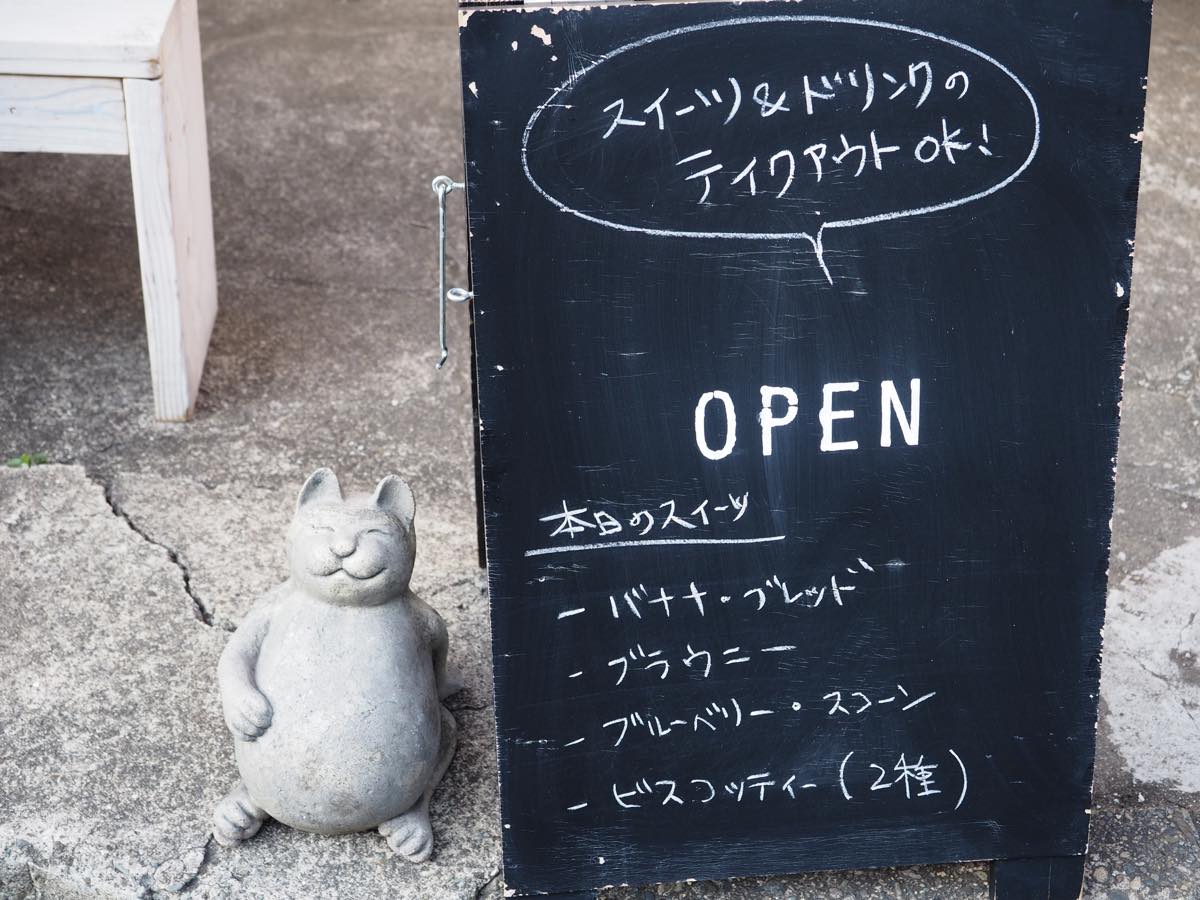 スイーツ&ドリンクの
テイクアウトOK!
OPEN
本日のスイーツ
- バナナ・ブレッド
- ブラウニー
- ブルーベリー・スコーン
- ビスコッティー(2種)